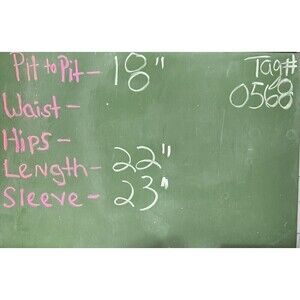 Pit to Pit - 18"
Tag#
0568
Waist -
Hips -
Length - 22"
Sleeve - 23"